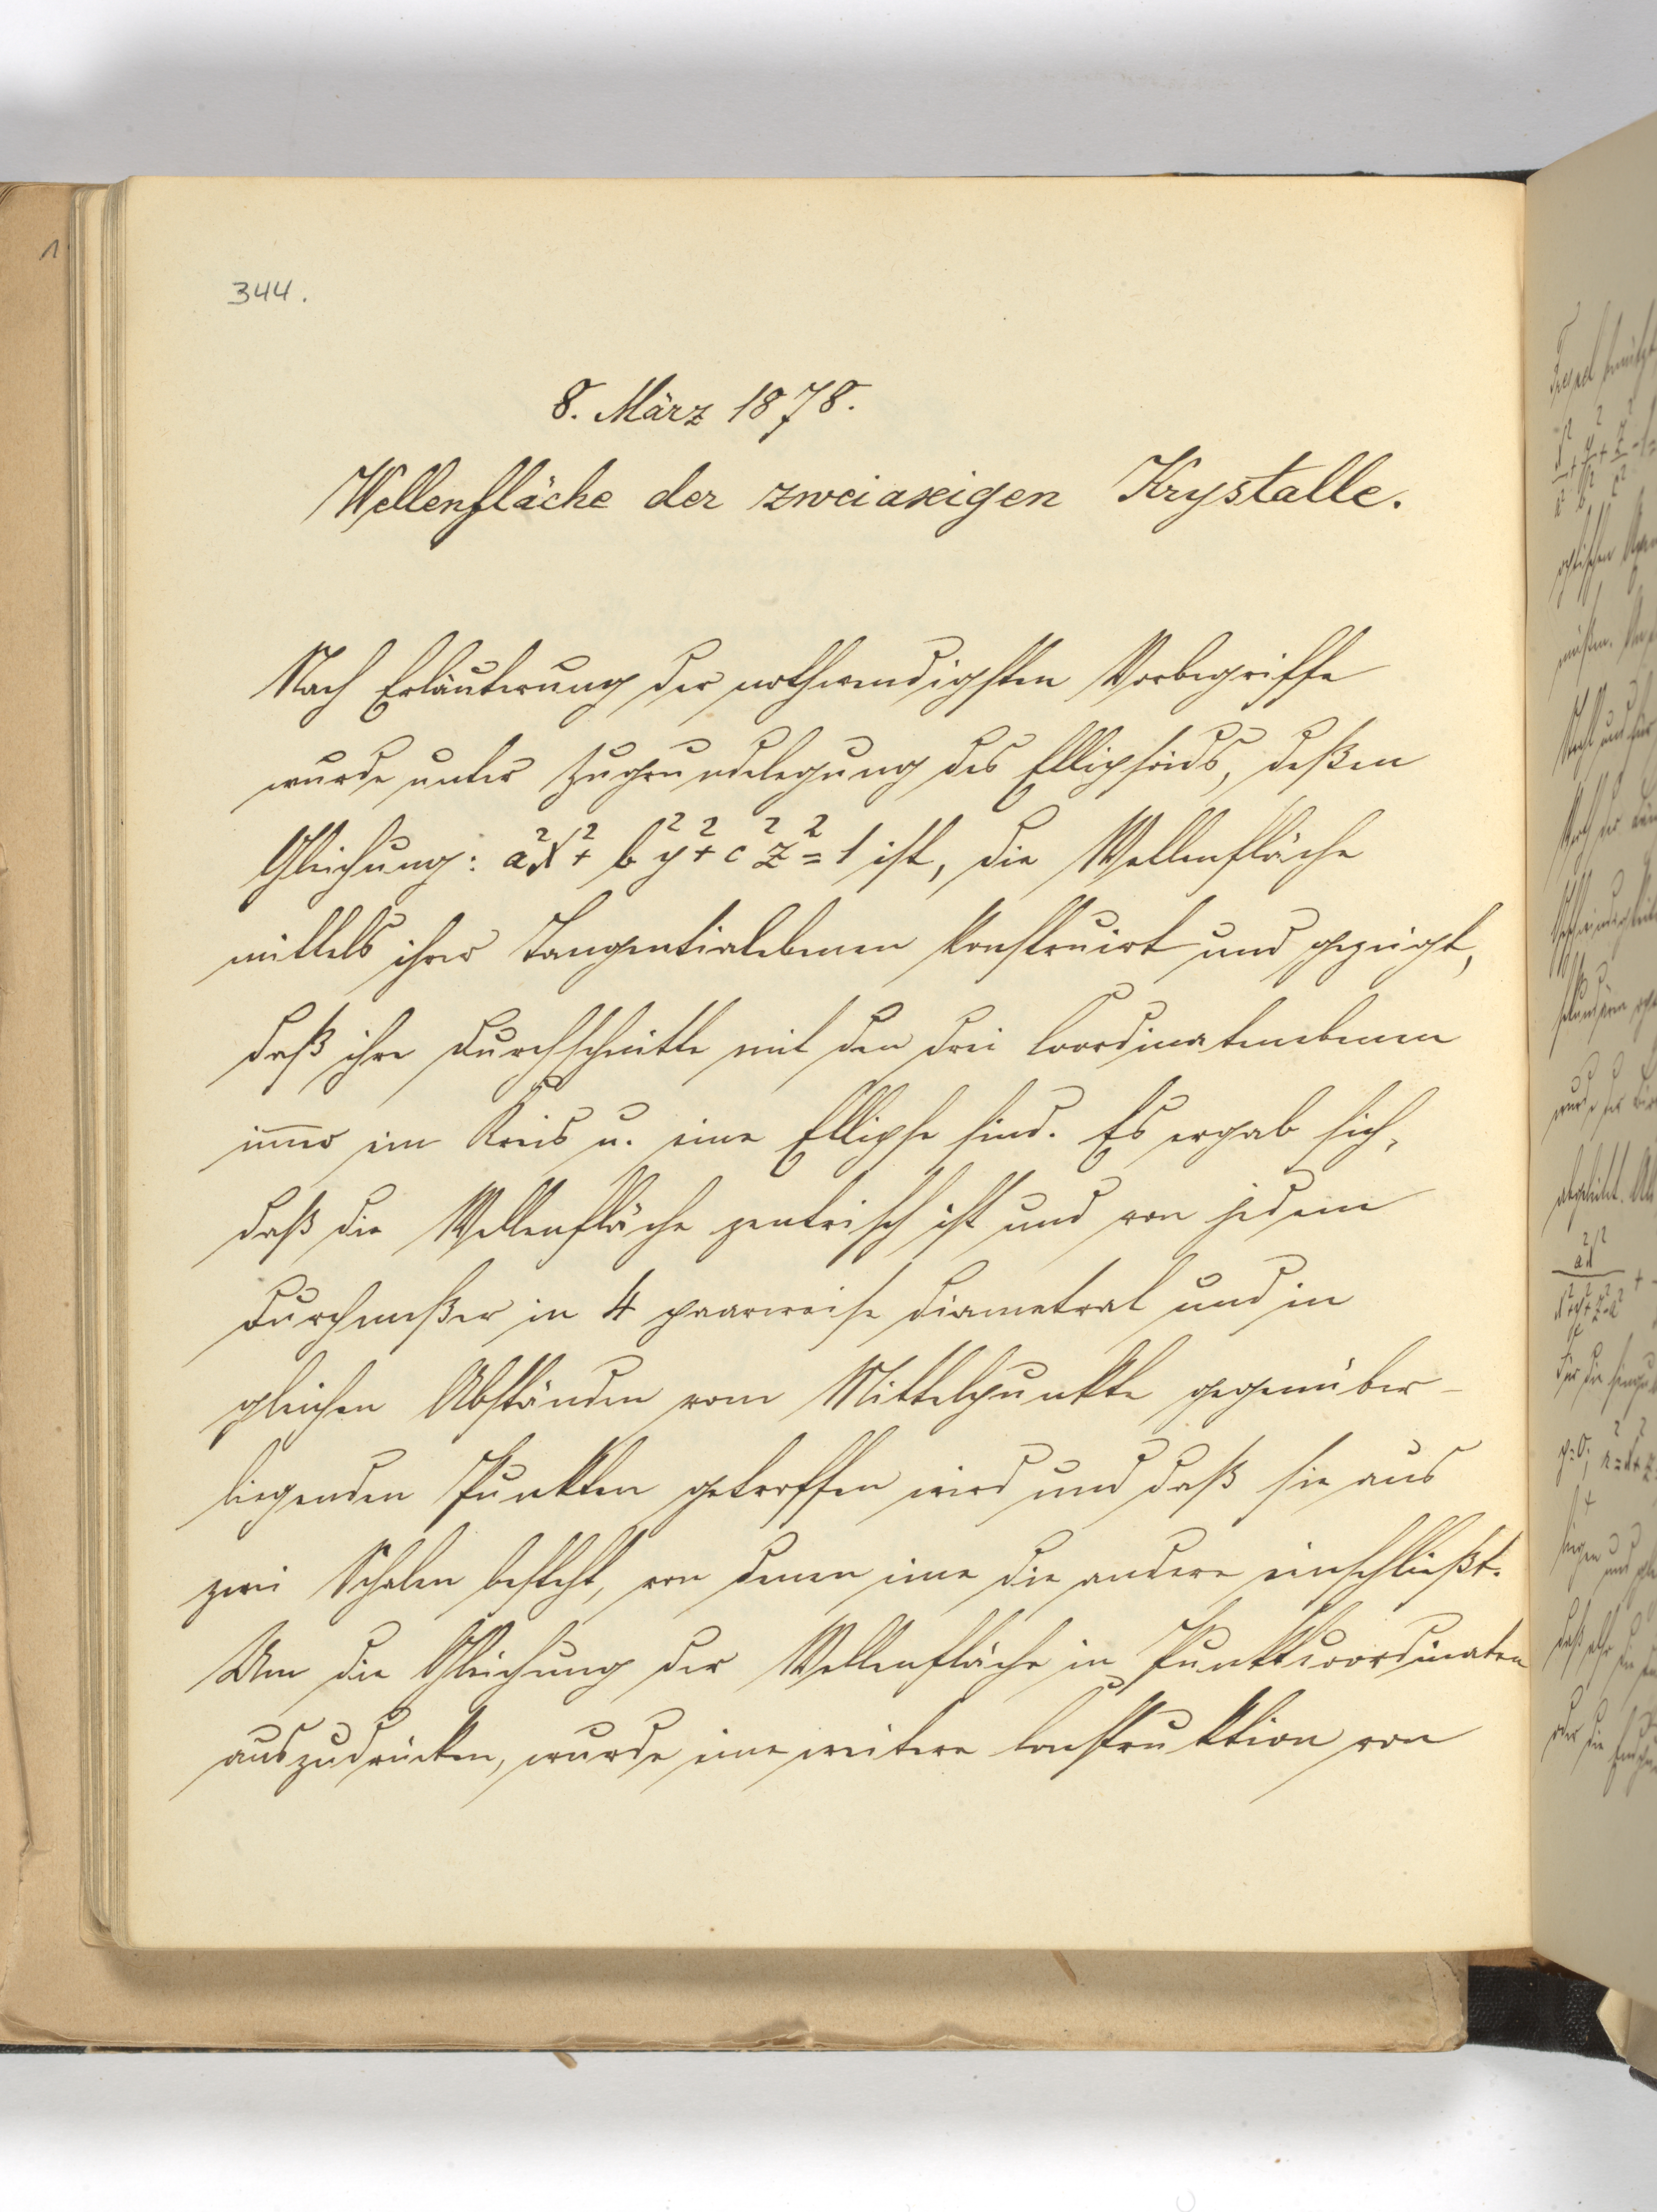 344.
8. März 1878.
Wellenfläche der zweiaxigen Krystalle.
Nach Erläuterung der nothwendigsten Vorbegriffe
wurde unter Zugrundelegung des Ellipsoids, deßen
Gleichung: a²x² + b²y² + c²z² = 1 ist, die Wellenfläche
mittels ihrer Tangentialebenen konstruirt und gezeigt,
daß ihre Durchschnitte mit den drei Coordinatenebenen
immer ein Kreis u. eine Ellipse sind. Es ergab sich,
daß die Wellenfläche zentrisch ist und von jedem
Durchmeßer in 4 paarweise diametral und in
gleichen Abständen vom Mittelpunkte gegenüber-
liegenden Punkten getroffen wird und daß sie aus
zwei Schalen besteht, von denen eine die andere einschließt.
Um die Gleichung der Wellenfläche in Punktkoordinaten
auszudrücken, wurde eine weitere Construktion von